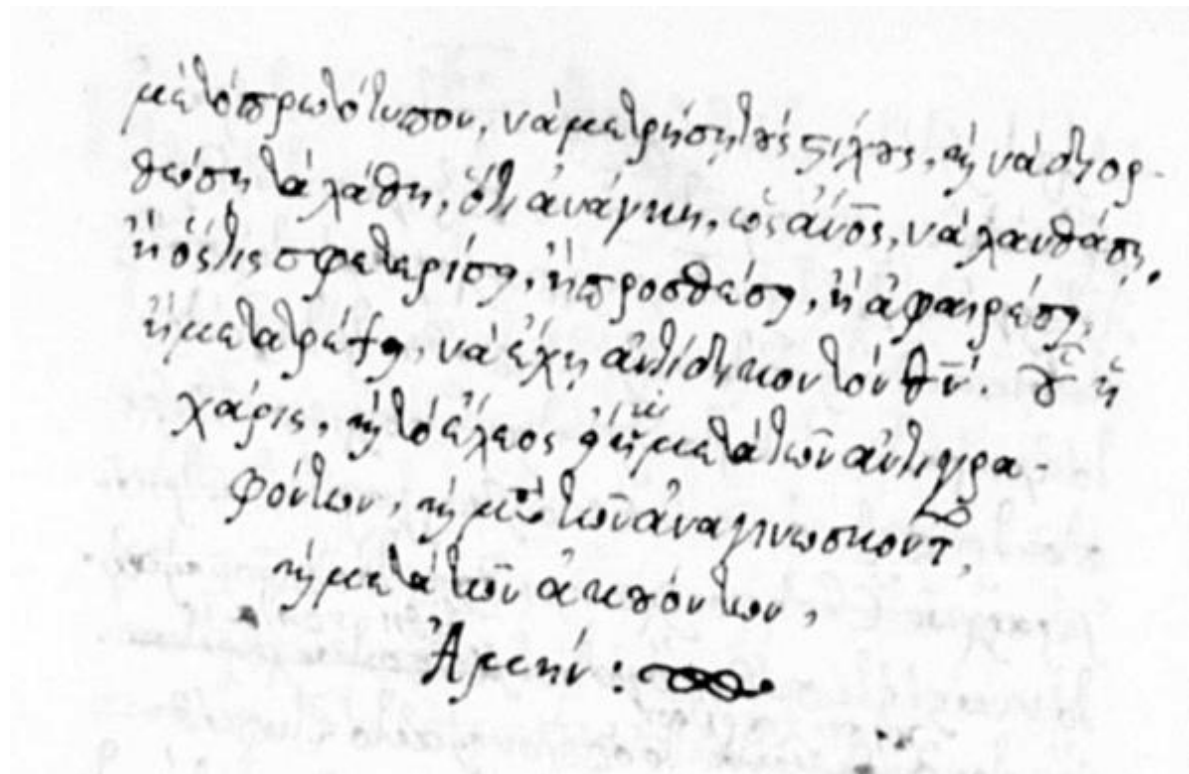 μὲ τὸ πρωτότυπον, νὰ μετρήσῃ τοὺς στίχους, καὶ νὰ διορ-
θώσῃ τὰ λάθη, ὅτι ἀνάγκη, ὡς ἄνος, νὰ λανθάσῃ,
ἢ ὅς τις σφετερίσῃ, ἢ προσθέσῃ, ἢ ἀφαιρέσῃ,
ἢ μετατρέψῃ, νὰ ἔχῃ ἀντίδικον τὸν θν. οὗ ἡ
χάρις, καὶ τὸ ἔλεος εἴη μετὰ τῶν ἀντιγρα-
φόντων, καὶ μετὰ τῶν ἀναγινωσκόντων,
καὶ μετὰ τῶν ἀκουόντων,
Ἀμήν: